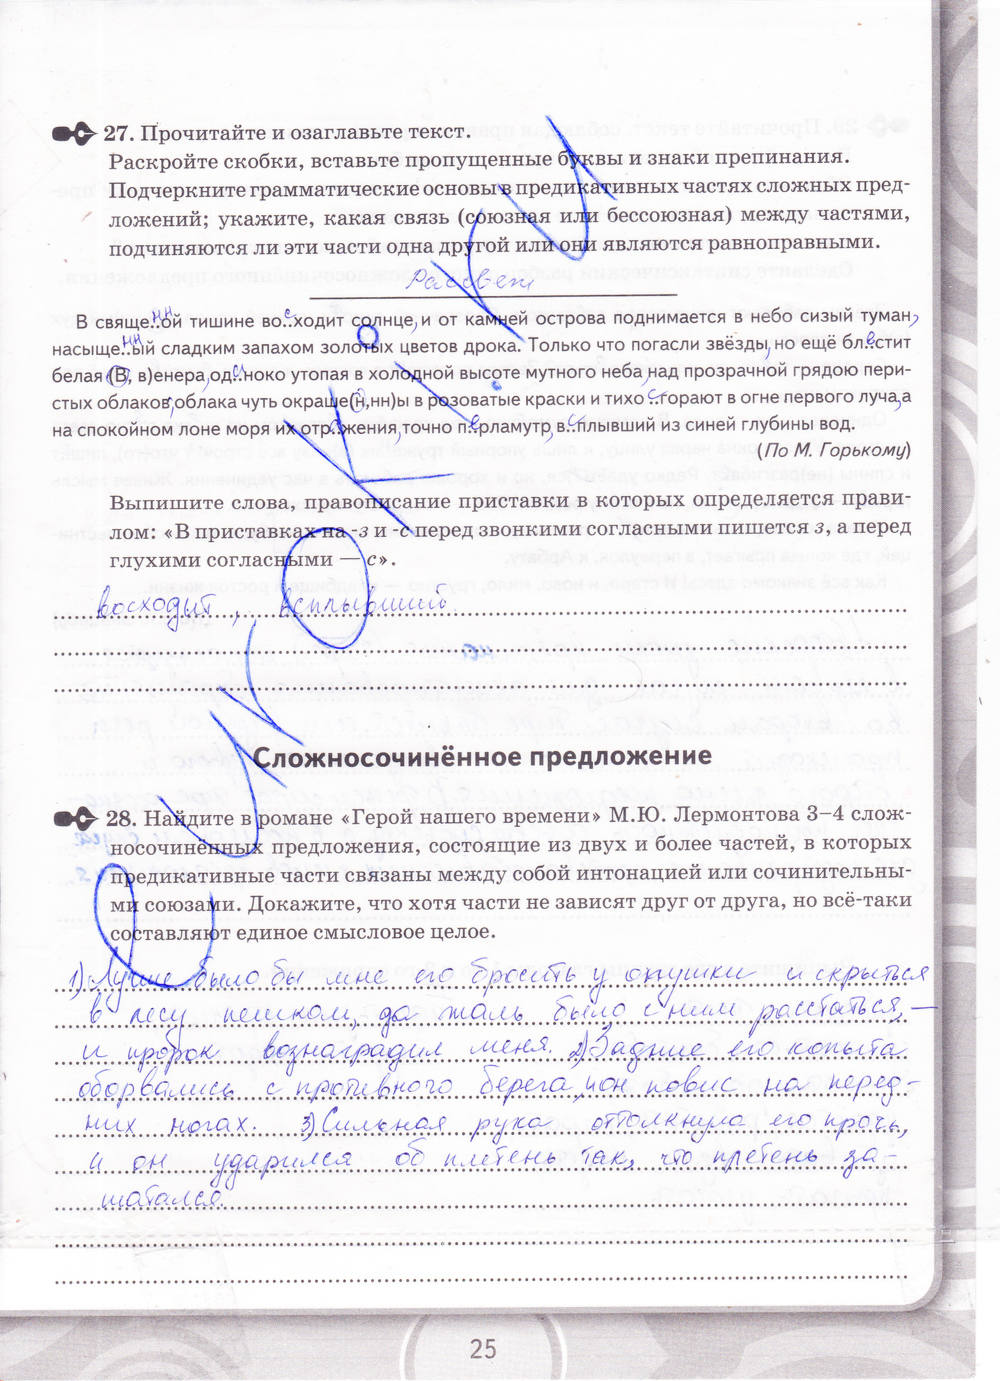 27. Прочитайте и озаглавьте текст.
Раскройте скобки, вставьте пропущенные буквы и знаки препинания.
Подчеркните грамматические основы в предикативных частях сложных пред-
ложений; укажите, какая связь (союзная или бессоюзная) между частями,
подчиняются ли эти части одна другой или они являются равноправными.
Рассвет
В свяще..нной тишине во..сходит солнце, и от камней острова поднимается в небо сизый туман,
насыще..нный сладким запахом золотых цветов дрока. Только что погасли звёзды, но ещё бл..естит
белая (В, в)енера, од..иноко утопая в холодной высоте мутного неба, над прозрачной грядою пери-
стых облаков, облака чуть окраше(н,нн)ы в розоватые краски и тихо ..сгорают в огне первого луча, а
на спокойном лоне моря их отр..ажения, точно п..ерламутр, в..сплывший из синей глубины вод.
(По М. Горькому)
Выпишите слова, правописание приставки в которых определяется прави-
лом: «В приставках на -з и -с перед звонкими согласными пишется з, а перед
глухими согласными — с».
восходит, всплывший
Сложносочинённое предложение
28. Найдите в романе «Герой нашего времени» М.Ю. Лермонтова 3–4 слож-
носочинённых предложения, состоящие из двух и более частей, в которых
предикативные части связаны между собой интонацией или сочинительны-
ми союзами. Докажите, что хотя части не зависят друг от друга, но всё-таки
составляют единое смысловое целое.
1) Лучше было бы мне его бросить у опушки и скрыться
в лесу пешком, да жаль было с ним расстаться, —
и пророк вознаградил меня. 2) Задние его копыта
оборвались с противного берега, и он повис на перед-
них ногах. 3) Сильная рука оттолкнула его прочь,
и он ударился об плетень так, что плетень за-
шатался.
25